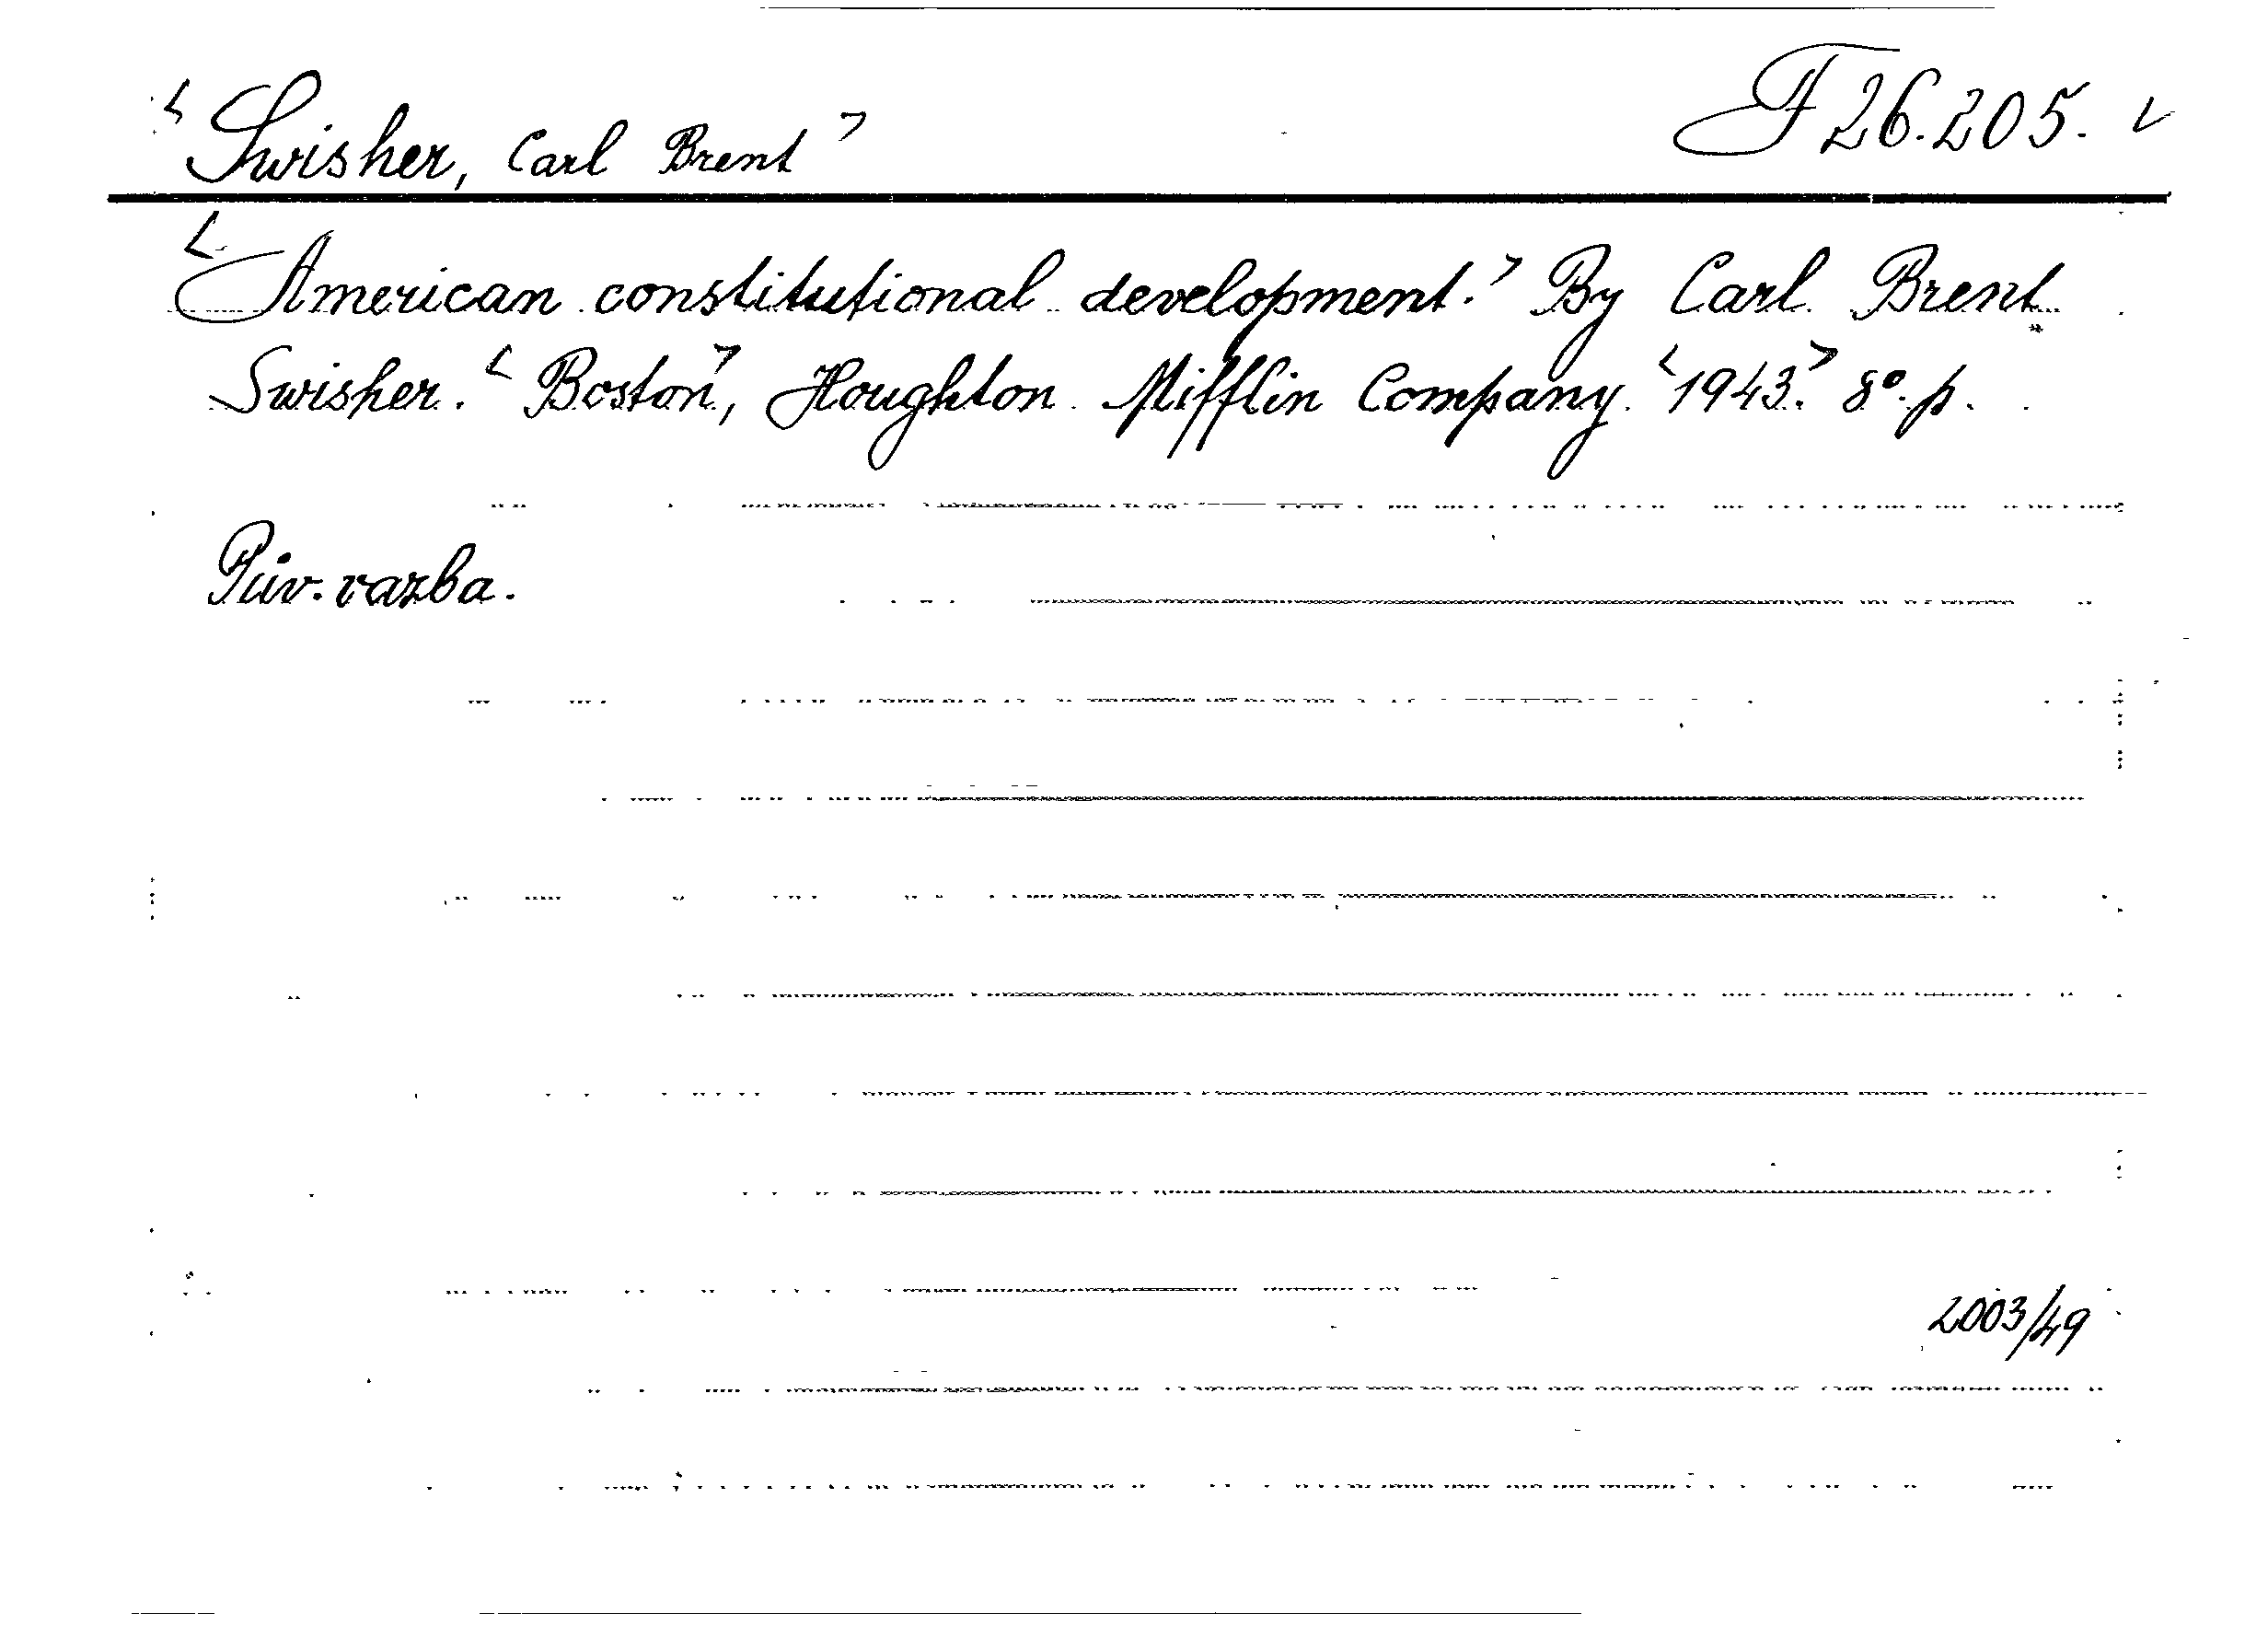 < Swisher, Carl Brent > F 26.205. v
< American constitutional development. > By Carl Brent
Swisher. < Boston >, Houghton Mifflin Company. < 1943. > 8°. p.
Pův. vazba.
2003/49